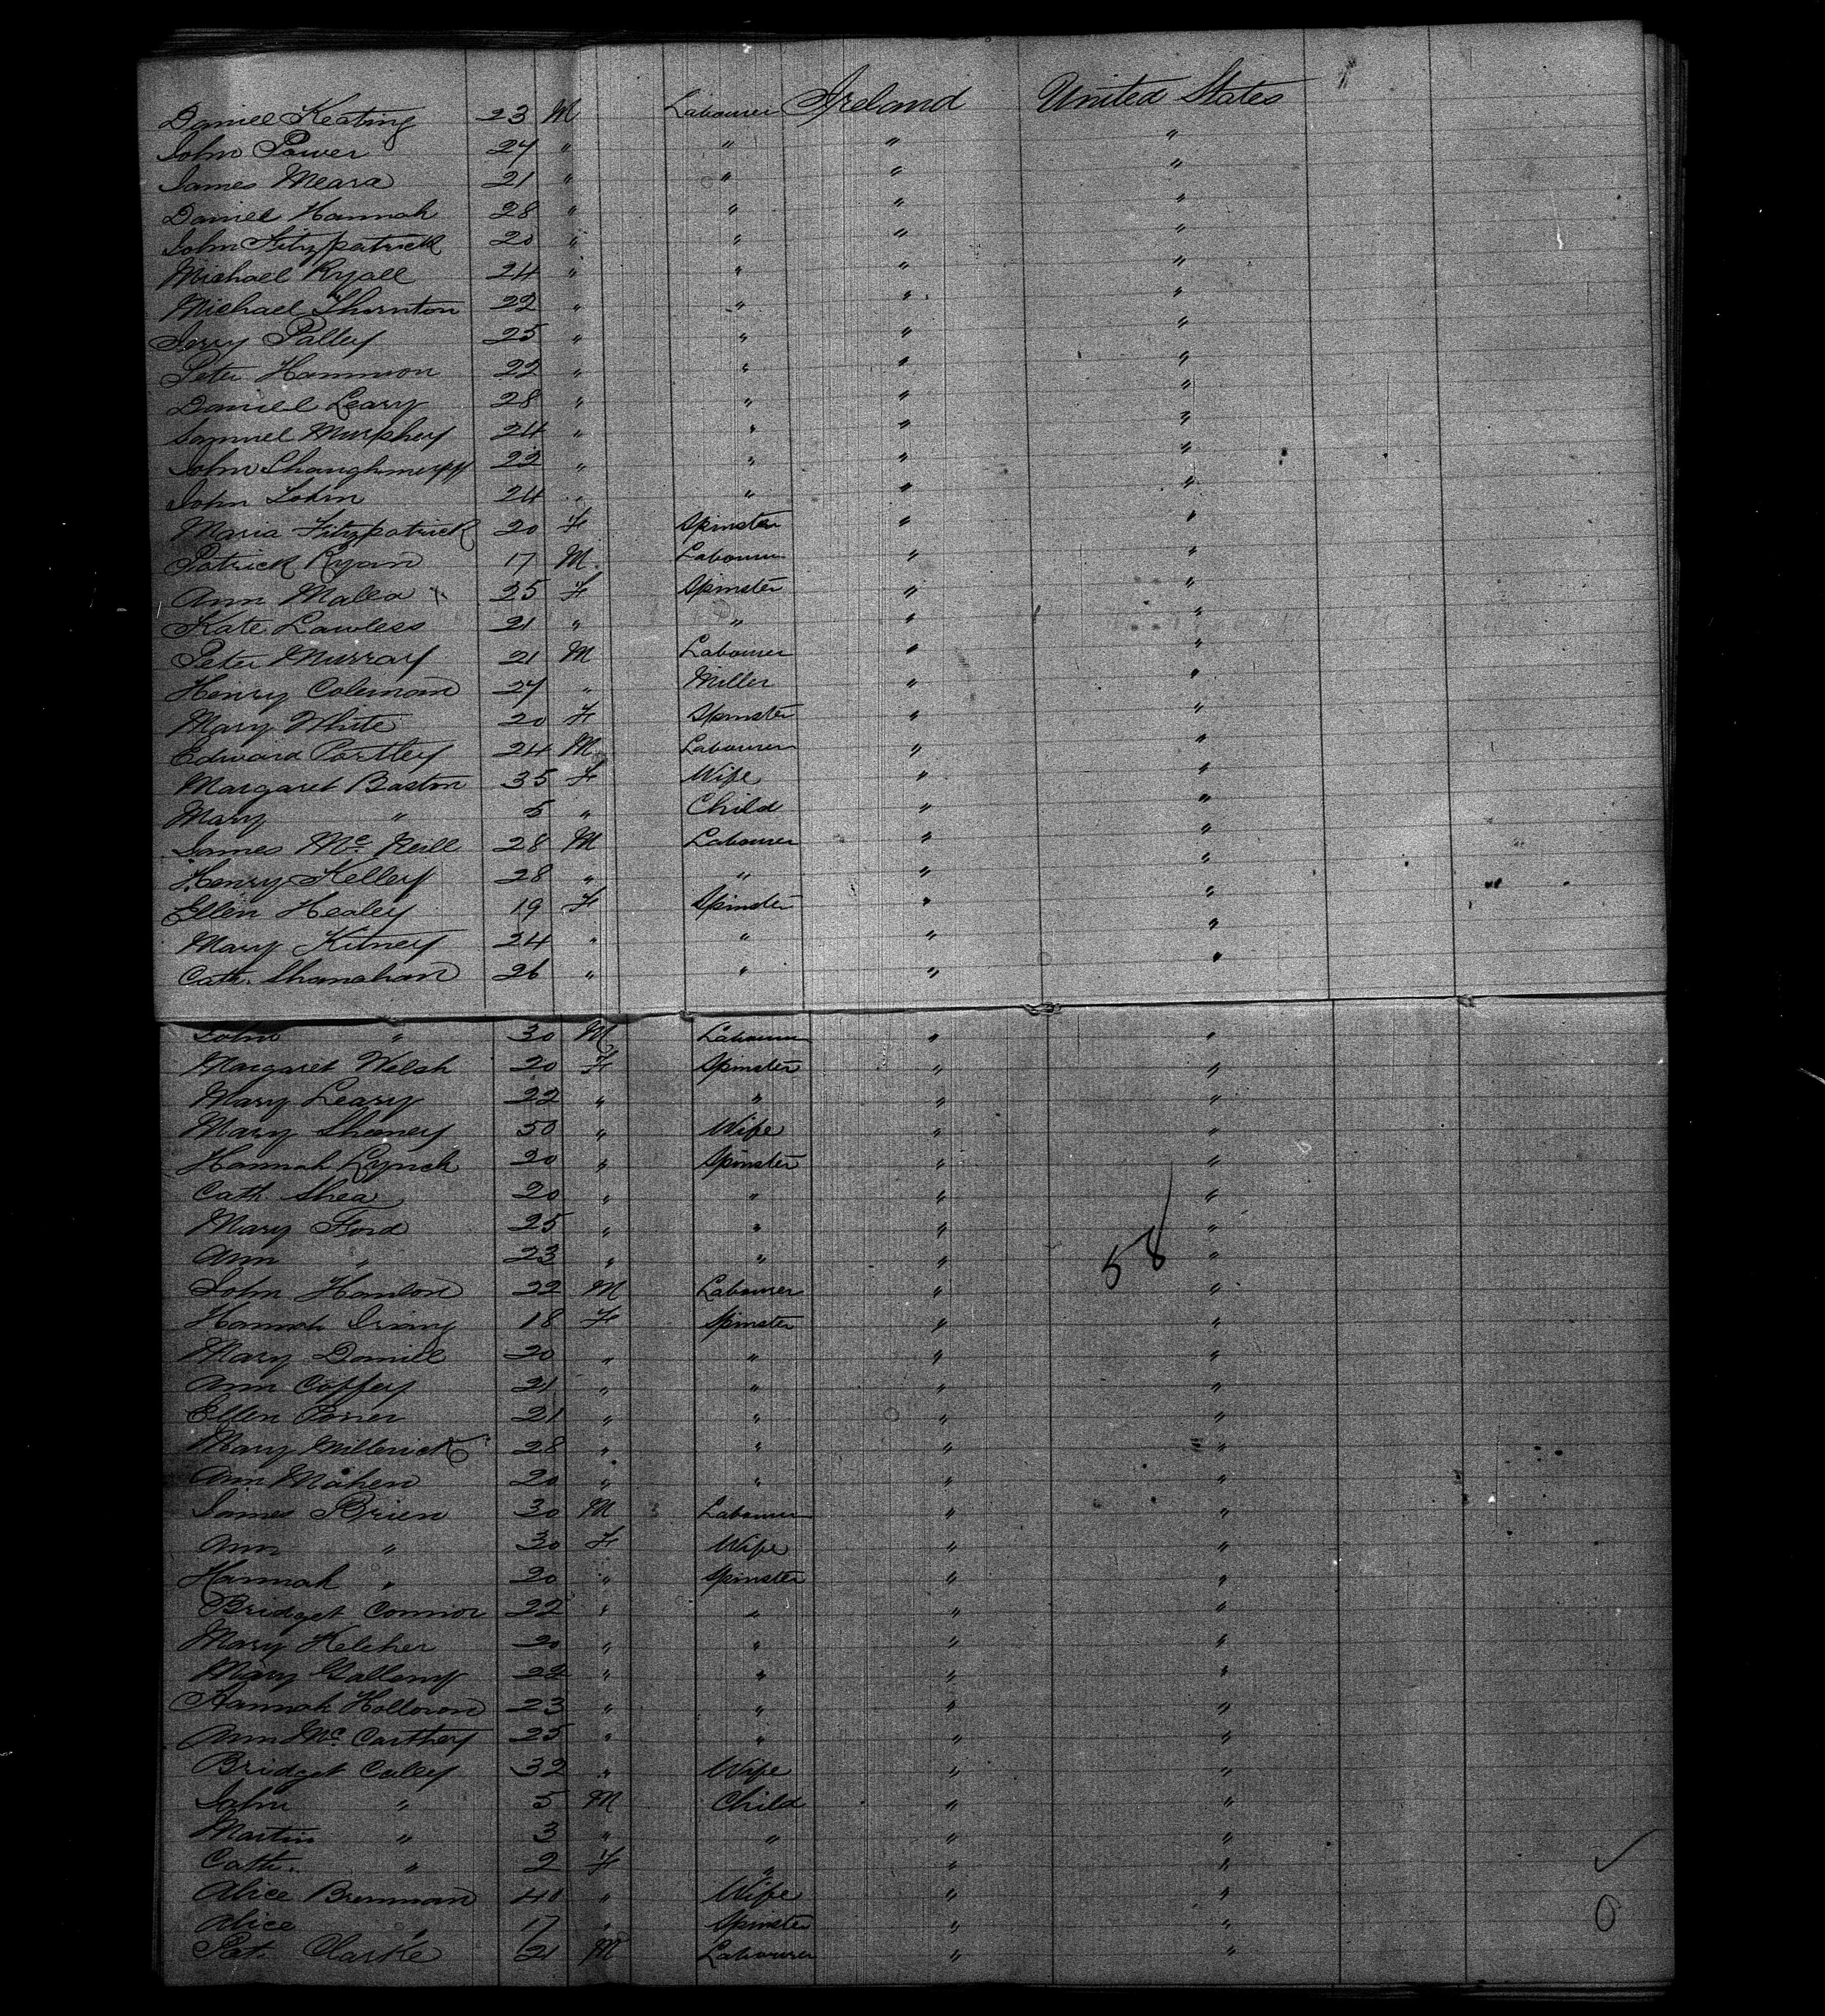 Daniel Keating 23 M Labourer Ireland United States
John Power 24 " " " "
James Meara 21 " " " "
Daniel Hannah 28 " " " "
John Fitzpatrick 20 " " " "
Michael Ryall 24 " " " "
Michael Thornton 22 " " " "
Jerry Palley 25 " " " "
Peter Hammon 22 " " " "
Daniel Leary 28 " " " "
Samuel Murphey 24 " " " "
John 22 " " " "
John 24 " " " "
Maria Fitzpatrick 20 F Spinster " "
Patrick Ryan 17 M Labourer " "
Ann Malea 25 F Spinster " "
Kate Lawless 21 " " " "
Peter Murray 21 M Labourer " "
Henry Coleman 27 " Miller " "
Mary White 20 F Spinster " "
Edward Portley 24 M Labourer " "
Margaret Baston 35 F Wife " "
Mary " 5 " Child " "
James Mc Neill 28 M Labourer " "
Henry Kelley 28 " " " "
Ellen Healey 19 F Spinster " "
Mary Kitney 24 " " " "
Cath. Shanahan 26 " " " "
John " 30 M Labourer " "
Margaret Welsh 20 F Spinster " "
Mary Leary 22 " " " "
Mary Shaney 50 " Wife " "
Hannah Lynch 20 " Spinster " "
Cath Shea 20 " " " "
Mary Ford 25 " " " "
Ann " 23 " " " " 58
John Hanlon 22 M Labourer " "
Hannah 18 F Spinster " "
Mary Daniel 20 " " " "
Ann Coffey 21 " " " "
Ellen 21 " " " "
Mary Millerick 28 " " " "
Ann Mahen 20 " " " "
James Brien 30 M Labourer " "
Ann " 30 F Wife " "
Hannah " 20 " Spinster " "
Bridget Connor 22 " " " "
Mary Keleher 20 " " " "
Mary 22 " " " "
Hannah Holloron 23 " " " "
Ann Mc Carthey 25 " " " "
Bridget Culey 32 " Wife " "
John " 5 M Child " "
Martin " 3 " " " "
Cath. " 2 F " " "
Alice Brennan 40 " Wife " "
Alice " 17 " Spinster " "
Pat. Clarke 21 M Labourer " "